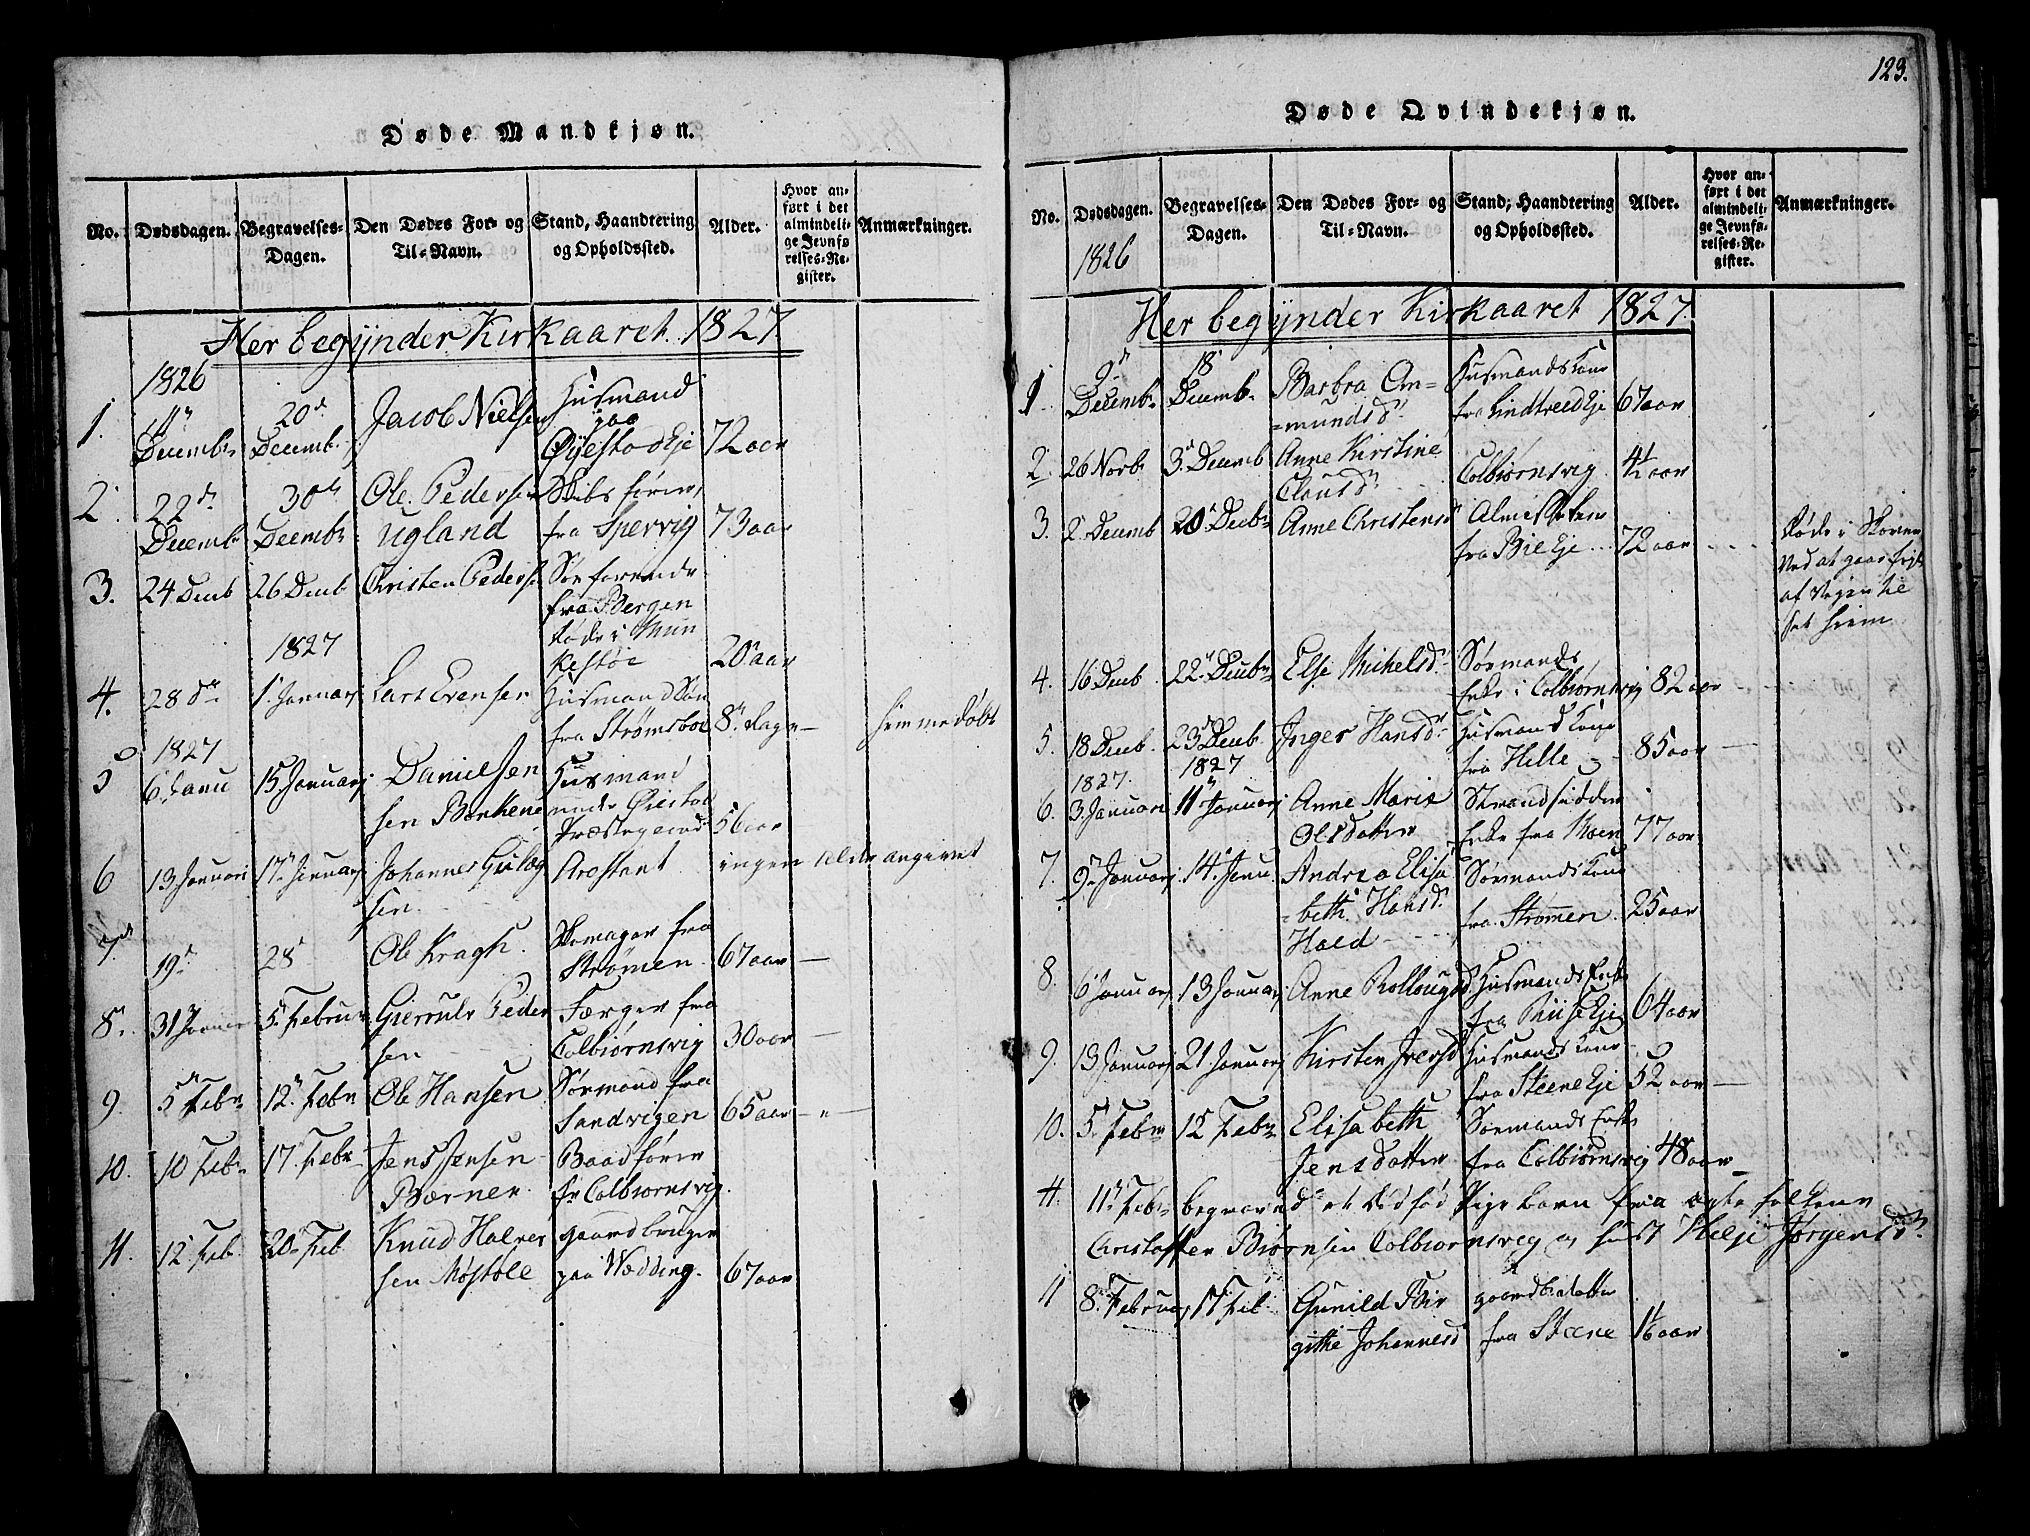 Døde Mandkjøn.
No. Dødsdagen. Begravelses-Dagen. Den Dødes For- og Til-Navn. Stand, Haandtering og Opholdssted. Alder. Hvor anført i det almindelige Jevnførelses-Register. Anmærkninger.
Her begynder Kirkaaret 1827.
1826
1. 11 Decembr 20de Decemb. Jacob Nielsen Husmand paa Øyestad Eje 72 aar
2. 22de Decemb 30de Decembr Ole Pedersen Ugland Skibsfører fra Spervig 73 aar
3. 24 Decb 26 Decb Christen Pedersen Søefarende fra Bergen døde i Munkestøe 20 aar
1827
4. 28de 1. Januarj Lars Evensen Husmand Søn fra Strømsboe 8te dage — hjemmedøbt
1827
5 6. Janu 15. Januarj Danielsen Berthene Husmand under Øiestad Præstegaard 56 aar
6 13 Januari 17. Januarj Johannes Gulogsen Arestant ingen alder angivet
7. 19de 28 Ole Kragh. Skomager fra Strømen 67 aar —
8. 31 Januar 5. Februar Gierruls Pedersen Farger fra Colbiørnsvig 30 aar —
9. 5 Febr 12. Febr Ole Hansen Sørmand fra Sandvigen 65 aar — " —
10. 10 Febr 17. Febr Jens Jensen Bærner Baadfører fr Colbiørnsvig.
11. 12 Feb. 20. Feb Knud Halversen Møstøle gaardbruger paa Wedding. 67 aar
123.
Døde Qvindekjøn.
No. Dødsdagen. Begravelses-Dagen. Den Dødes For- og Til-Navn. Stand, Haandtering og Opholdssted. Alder. Hvor anført i det almindelige Jevnførelses-Register. Anmærkninger.
1826
Her begynder Kirkaaret 1827.
1. 9de Decembr 18 Decemb. Barbra Amundsd. Husmands Kone fra Lindtveed Eje 67 aar
2. 26 Novb 3. Decemb Anne Kirstine Clausd. Colbiørnsvig 4½ aar
3. 2. Decemb 20. Decb Anne Christensd Almisselem fra Bie Eje 72 aar døde i Skoven ved at gaae fejl af Vejen til sit hiem
4. 16 Decb 22. Decbr Else Michelsd. Sørmands Enke i Colbiørnsvig 82 aar —
5. 18 Decb. 23 Decb. Inger Hansd. Husmands Kone fra Helle 85 aar —
1827. 1827
6. 3. Januari 11 Januarj Anne Maria Olsdatter Strandsidder Enke fra Moen 77 aar
7. 9. Januarj 14. Janu Andrea Elisabeth Hansd. Hald Sørmands Kone fra Strømen. 25 aar
8. 6 Januarj 13 Januarj Anne Rollougsd. Husmands Enke fra Riise Eje 64 aar
9. 13 Januarj 21 Januarj Kirsten Iversd Husmands Kone fra Steene Eje 52 aar —
10. 5. Febr 12 Febr Elisabeth Jensdatter Sørmands Enke fra Colbiørnsvig 48 aar —
11. 11. Febr begraved et dødfød Pige barn fra ægte folkene
Christoffer Biørnsen Colbiornsveg og hust Helje Jørgensd.
11 8. Februarj 17 Feb. Gunild Birgithe Johannesd gaardb. datter fra Steene 16 aar